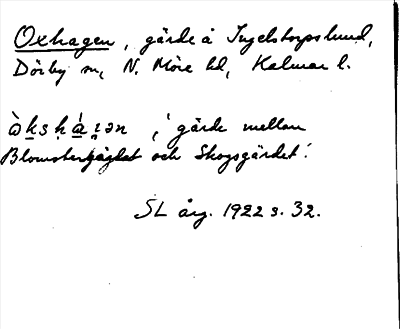 Oxhagen, gärde å Ingelstorpslund,
Dörby sn, N. Möre hd, Kalmar l.
gärde mellan
Blomstergärdet och Skogsgärdet'.
SL årg. 1922 s. 32.